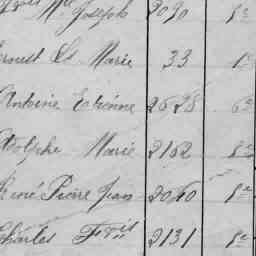 Joseph 2090 1e
Ernest Et Marie 33 1e
Antoine Etienne 2628 6e
Adolphe Marie 2162 8e
René Pierre Jean 2040 1e
Charles Fçois 2131 8e